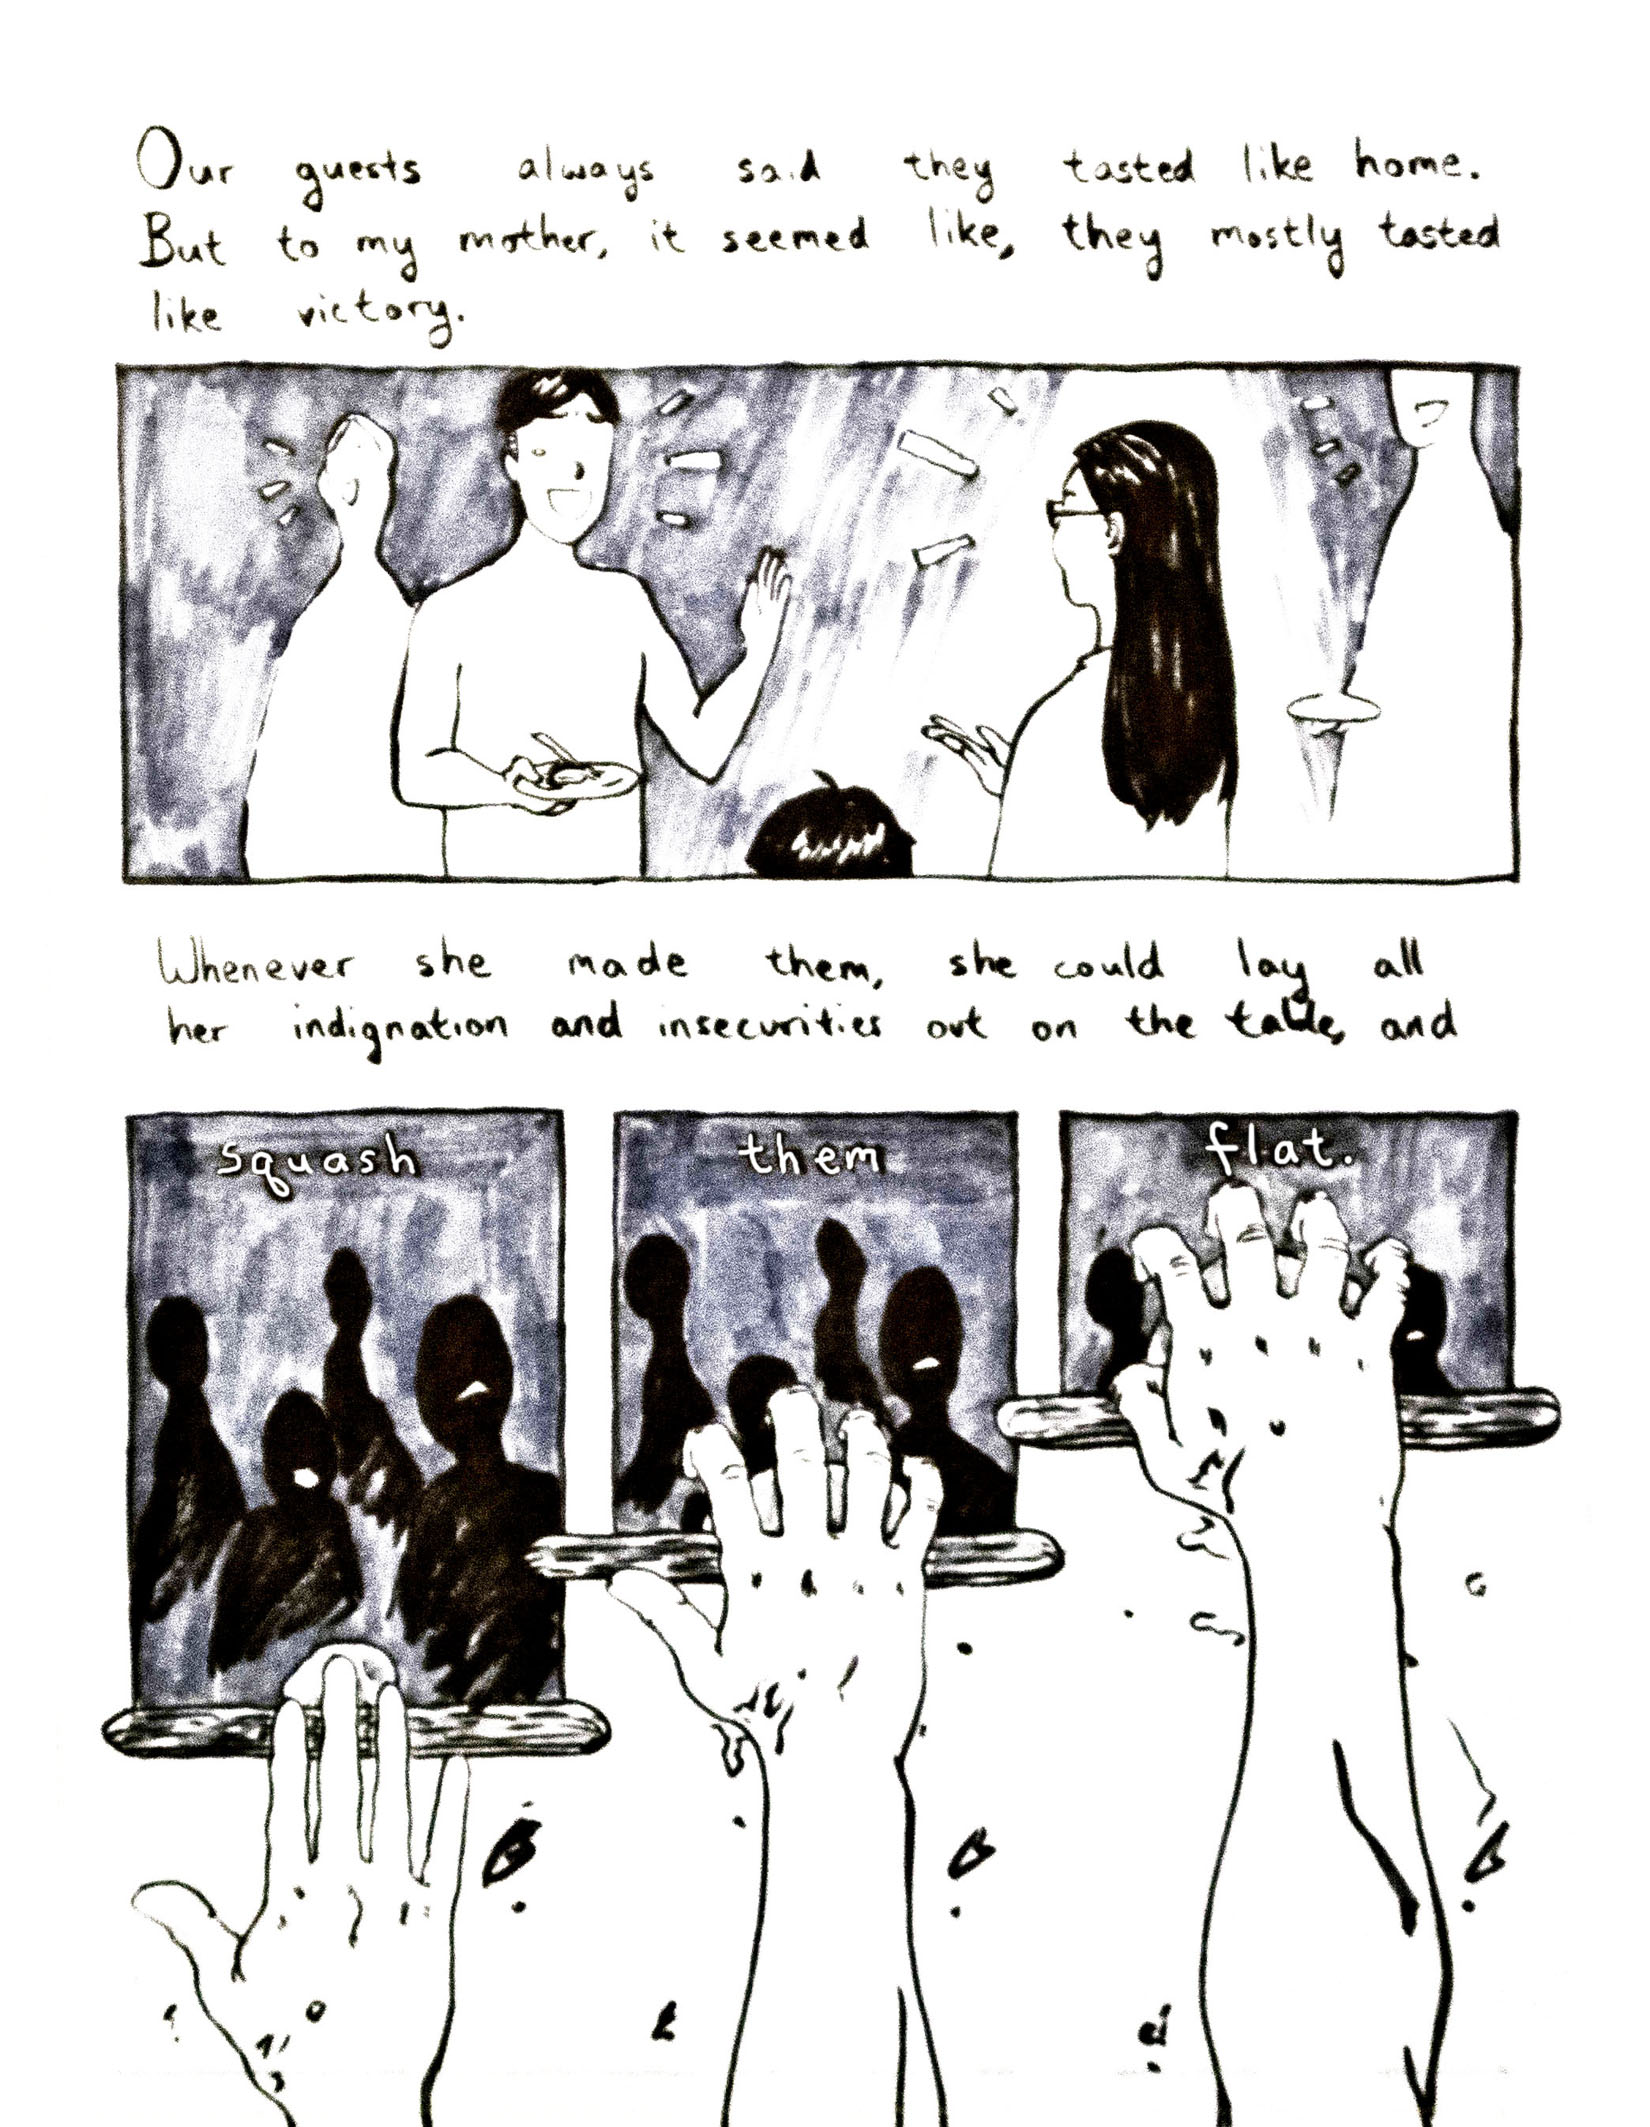 Our guests always said they tasted like home.
But to my mother, it seemed like, they mostly tasted
like victory.
Whenever she made them, she could lay all
her indignation and insecurities out on the table, and
squash
them
flat.